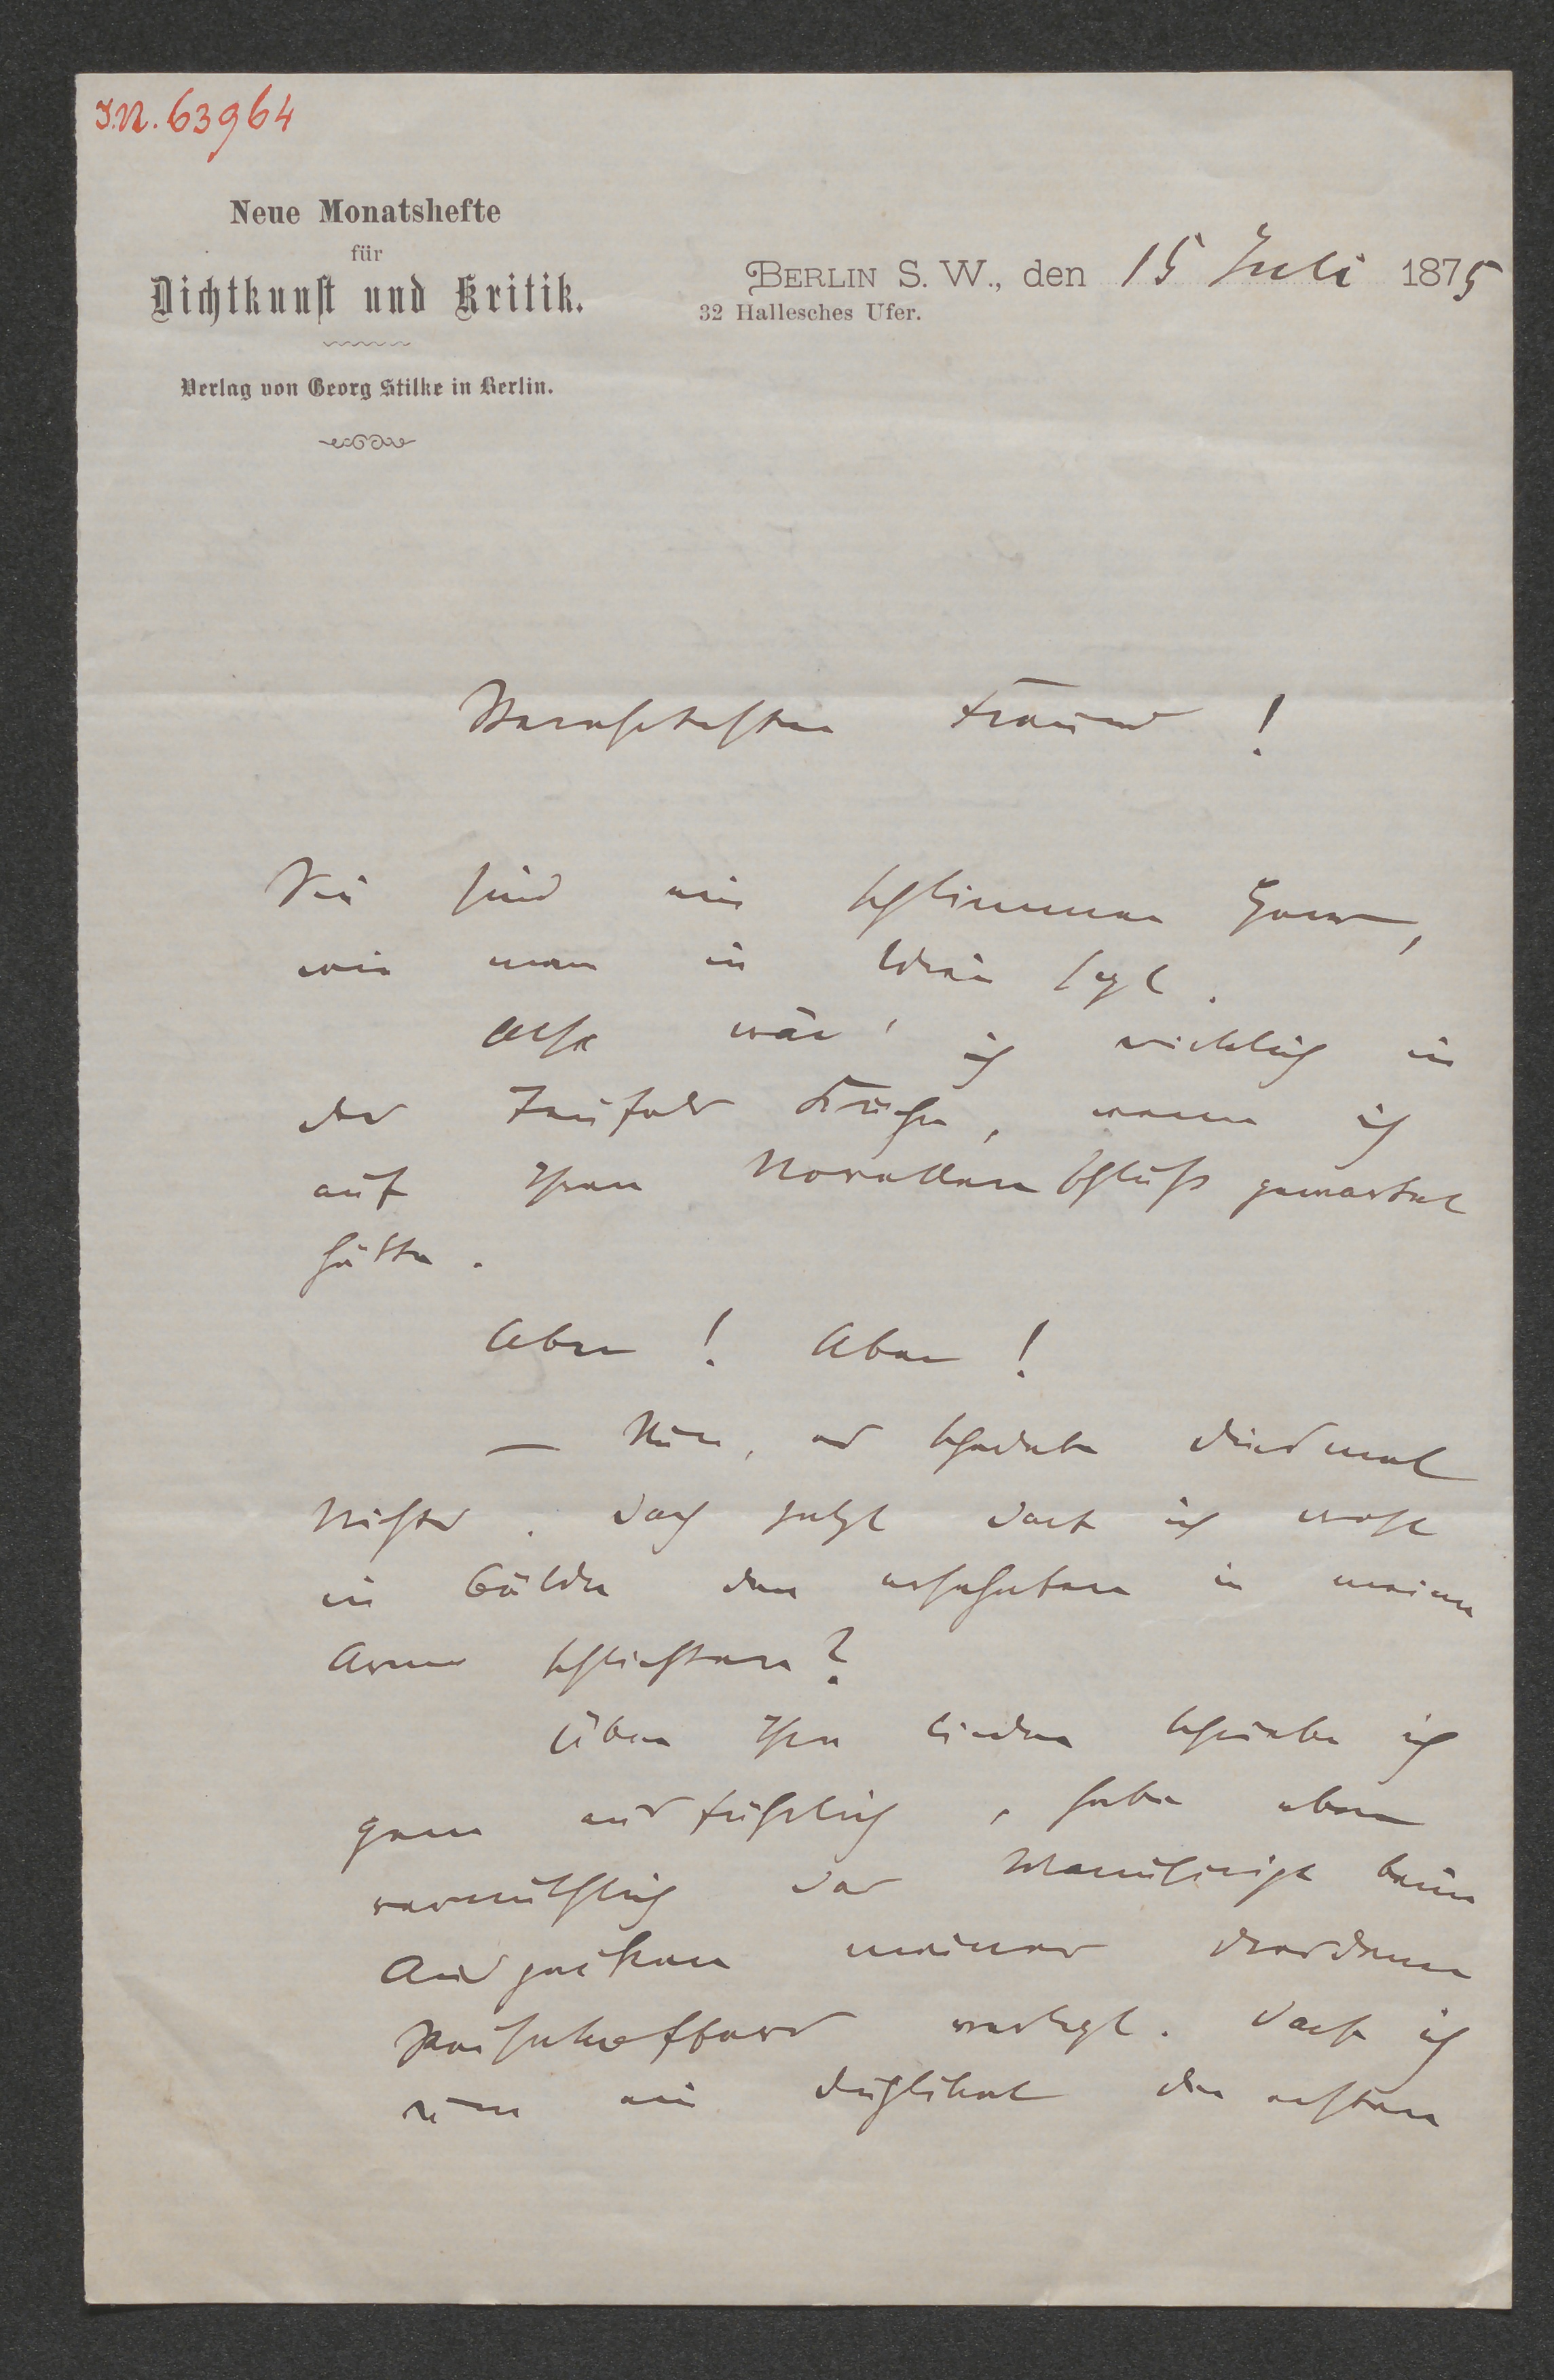 I.N. 63964
Neue Monatshefte
für
Dichtkunst und Kritik.
Verlag von Georg Stilke in Berlin.
BERLIN S. W., den 15 Juli 1875
32 Hallesches Ufer.
Verehrtester Freund!
Sie sind ein schlimmer Herr,
wie man in Wien sagt.
Also wär' ich wirklich in
des Teufels Küche, wenn ich
auf Ihren Novellenschluß gewartet
hätte.
Aber! Aber!
— Nun, es schadete diesmal
Nichts. Doch jetzt darf ich wohl
in Bälde den ersehnten in meine
Arme schließen?
Über Ihre Lieder schriebe ich
gern ausführlich, habe aber
vermuthlich das Manuscript beim
Auspacken meines
verlegt. Darf ich
nun ein Duplikat der ersten